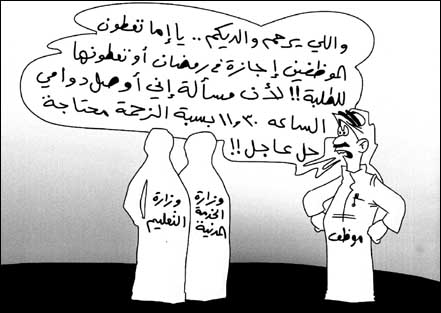 واللي يرحم والديكم .. يا إما تعطون
الموظفين إجازة في رمضان أو تعطونها
للطلبة!! لأن مسألة إني أوصل دوامي
الساعه ١١٫٣٠ بسبة الزحمة محتاجة
حل عاجل!!
وزارة
التعليم
وزارة
الخدمة
المدنية
موظف